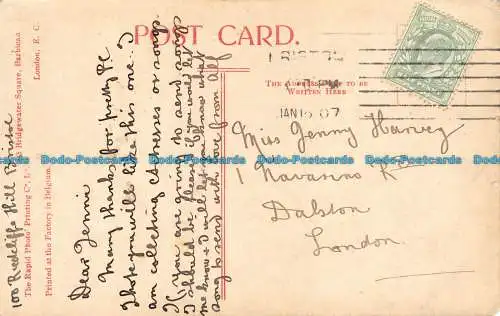 POST CARD.
THE ADDRESS ONLY TO BE
WRITTEN HERE
JAN 15 07
Miss Jenny Harvey
1 Navarino
Dalston
London.
100 Redcliffe Hill Bristol
Dear Jennie
Many thanks for pretty P.C
I hope you will like this one. I
am collecting Actresses or songs.
If you are going to send songs
I should be pleased if you would let
me know & I will let you know what
song to send with love from all
The Rapid Photo Printing Co. L
Bridgewater Square, Barbican
London, E. C.
Printed at the Factory in Belgium.
Dodo-Postcards
Dodo-Postcards
Dodo-Postcards
Dodo-Postcards